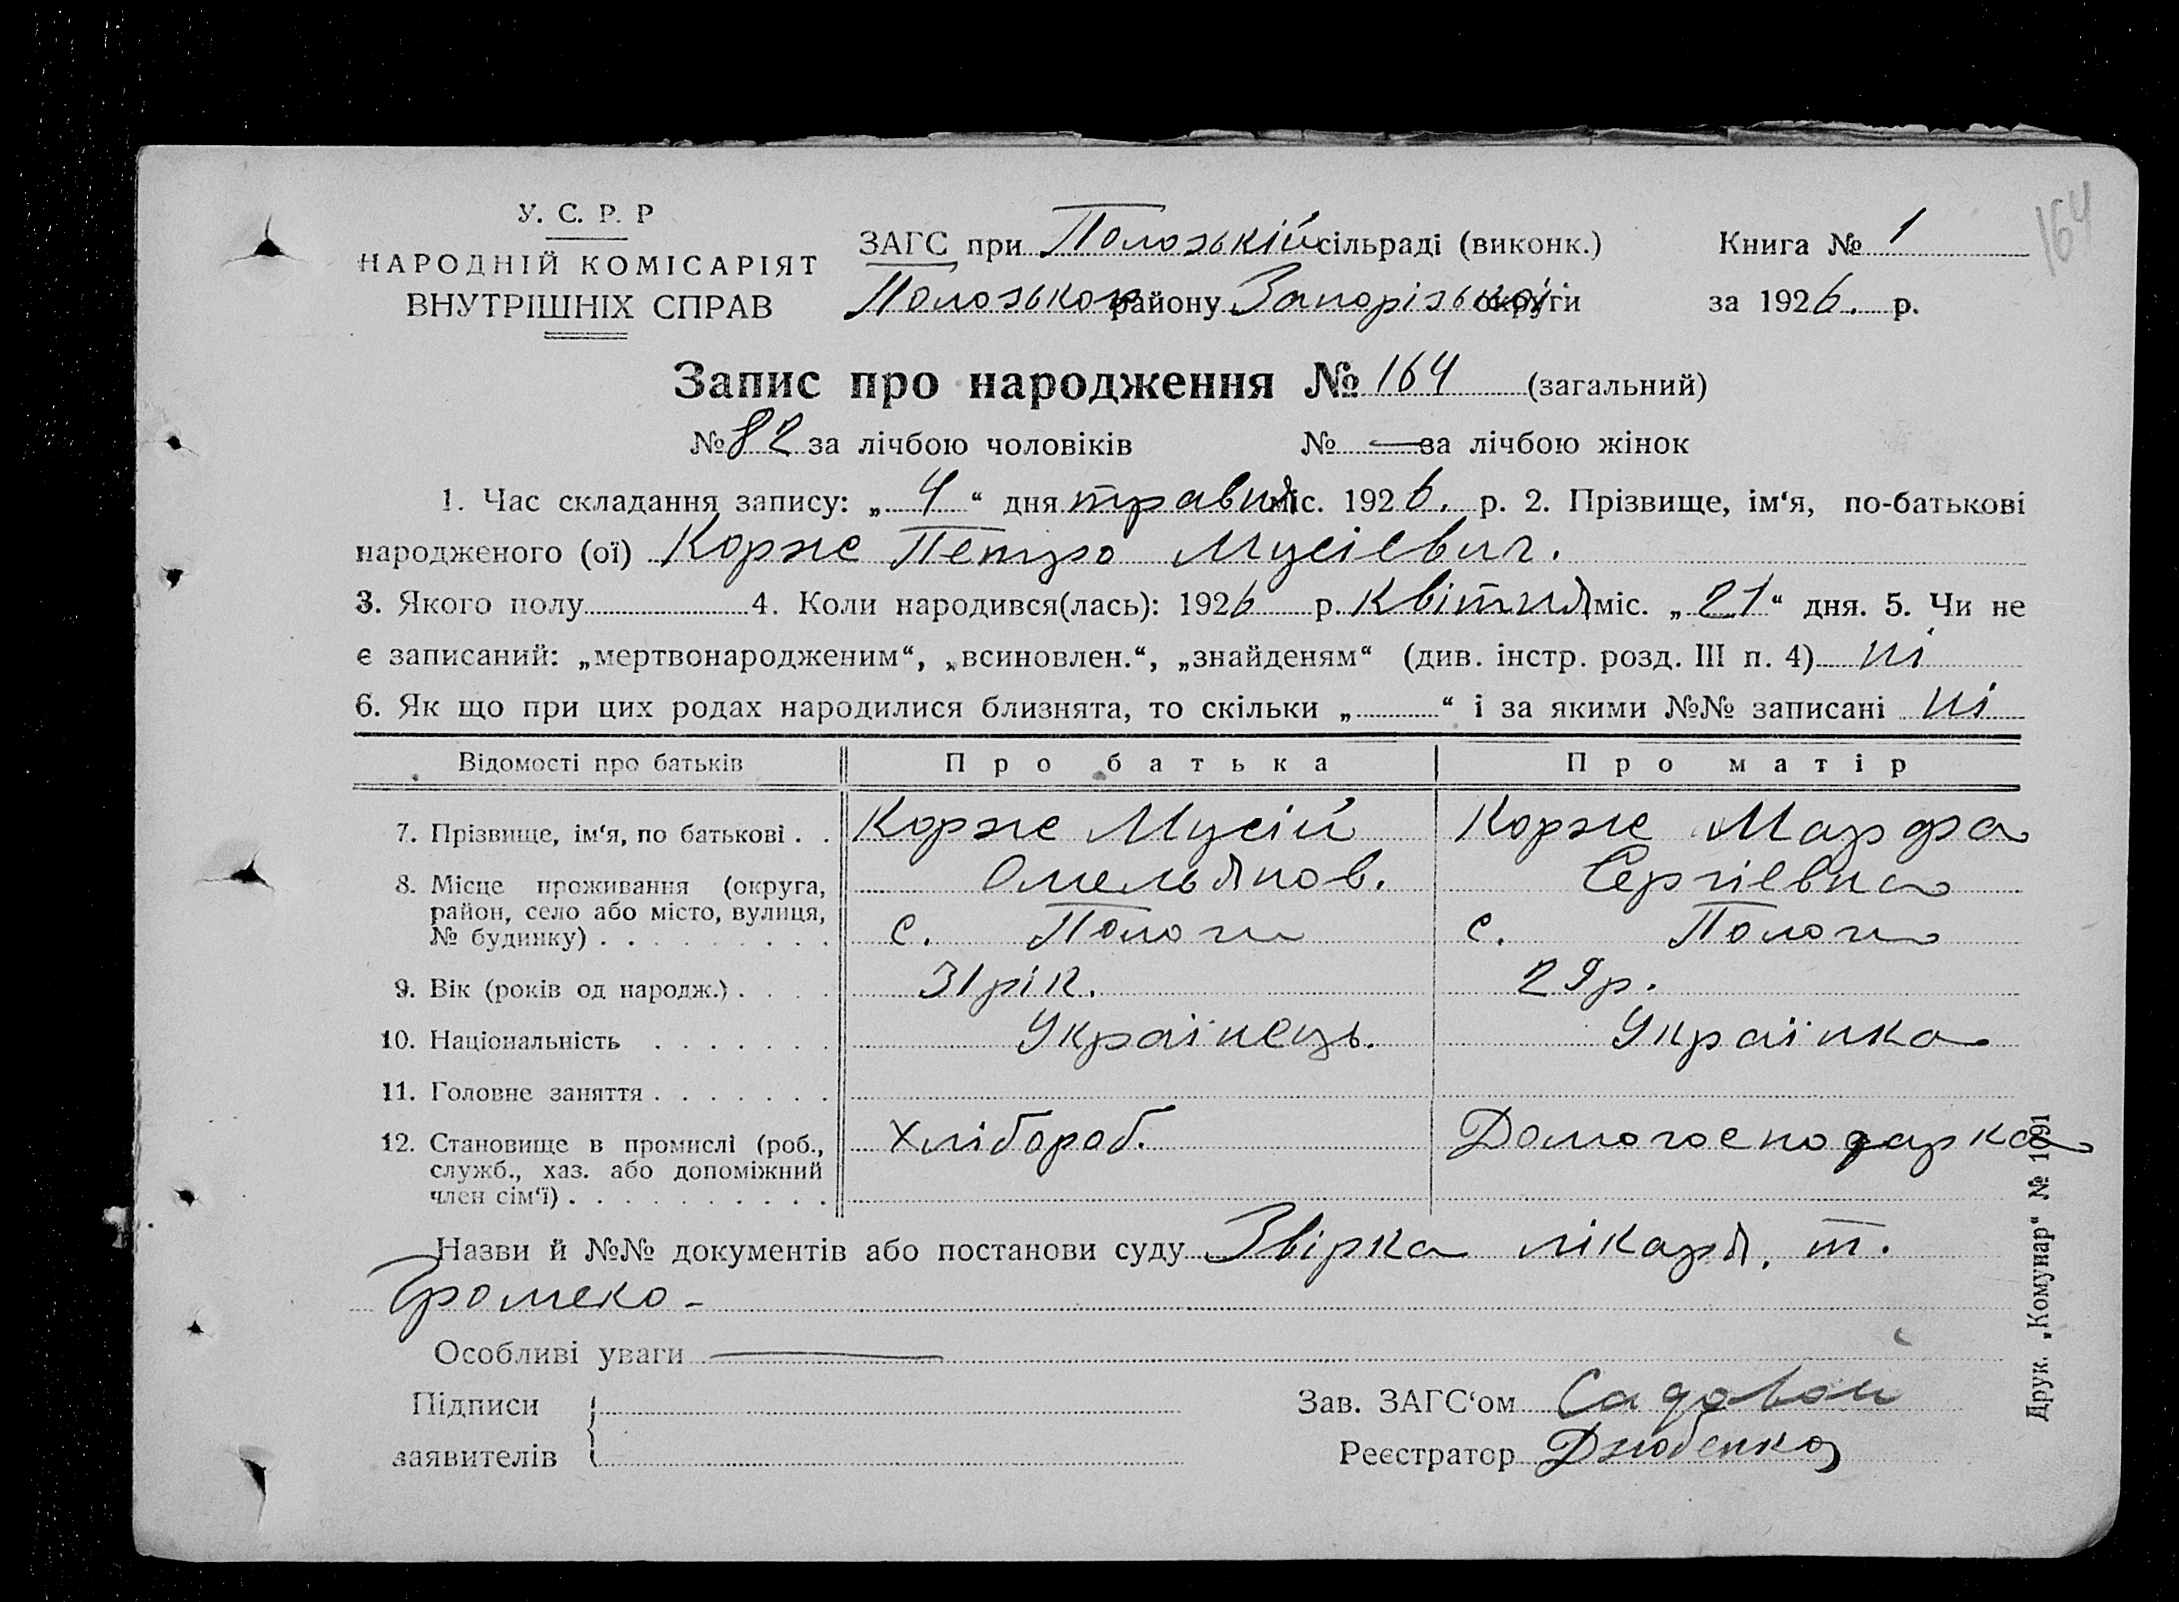 164
У. С. Р. Р
НАРОДНІЙ КОМІСАРІЯТ
ВНУТРІШНІХ СПРАВ
ЗАГС при Полозькій сільраді (виконк.)
Книга № 1
Полозького району Запорізької округи
за 1926. р.
Запис про народження № 164 (загальний)
№ 82 за лічбою чоловіків № — за лічбою жінок
1. Час складання запису: „ 4 “ дня травня міс. 1926. р. 2. Прізвище, ім‘я, по-батькові
народженого (ої) Корже Петро Мусієвич.
3. Якого полу 4. Коли народився(лась): 1926 р. квітня міс. „ 21 “ дня. 5. Чи не
є записаний: „мертвонародженим“, „всиновлен.“, „знайденям“ (див. інстр. розд. III п. 4) ні
6. Як що при цих родах народилися близнята, то скільки „ “ і за якими №№ записані ні
Відомості про батьків Про батька Про матір
7. Прізвище, ім‘я, по батькові . . Корже Мусій Корже Марфа
Омельянов. Сергієвна
8. Місце проживання (округа,
район, село або місто, вулиця,
№ будинку) . . . . . . . . . с. Пологи с. Пологи
9. Вік (років од народж.) . . . . 31 рік. 29 р.
10. Національність . . . . . . . Українець. Українка
11. Головне заняття . . . . . . .
12. Становище в промислі (роб., Хлібороб. Домогосподарка
служб., хаз. або допоміжний
член сім‘ї) . . . . . . . . . .
Назви й №№ документів або постанови суду Звірка лікаря, т.
Громеко -
Особливі уваги —
Підписи
заявителів
Зав. ЗАГС‘ом Садовой
Реєстратор Дзюбенко
Друк. „Комунар“ № 1091